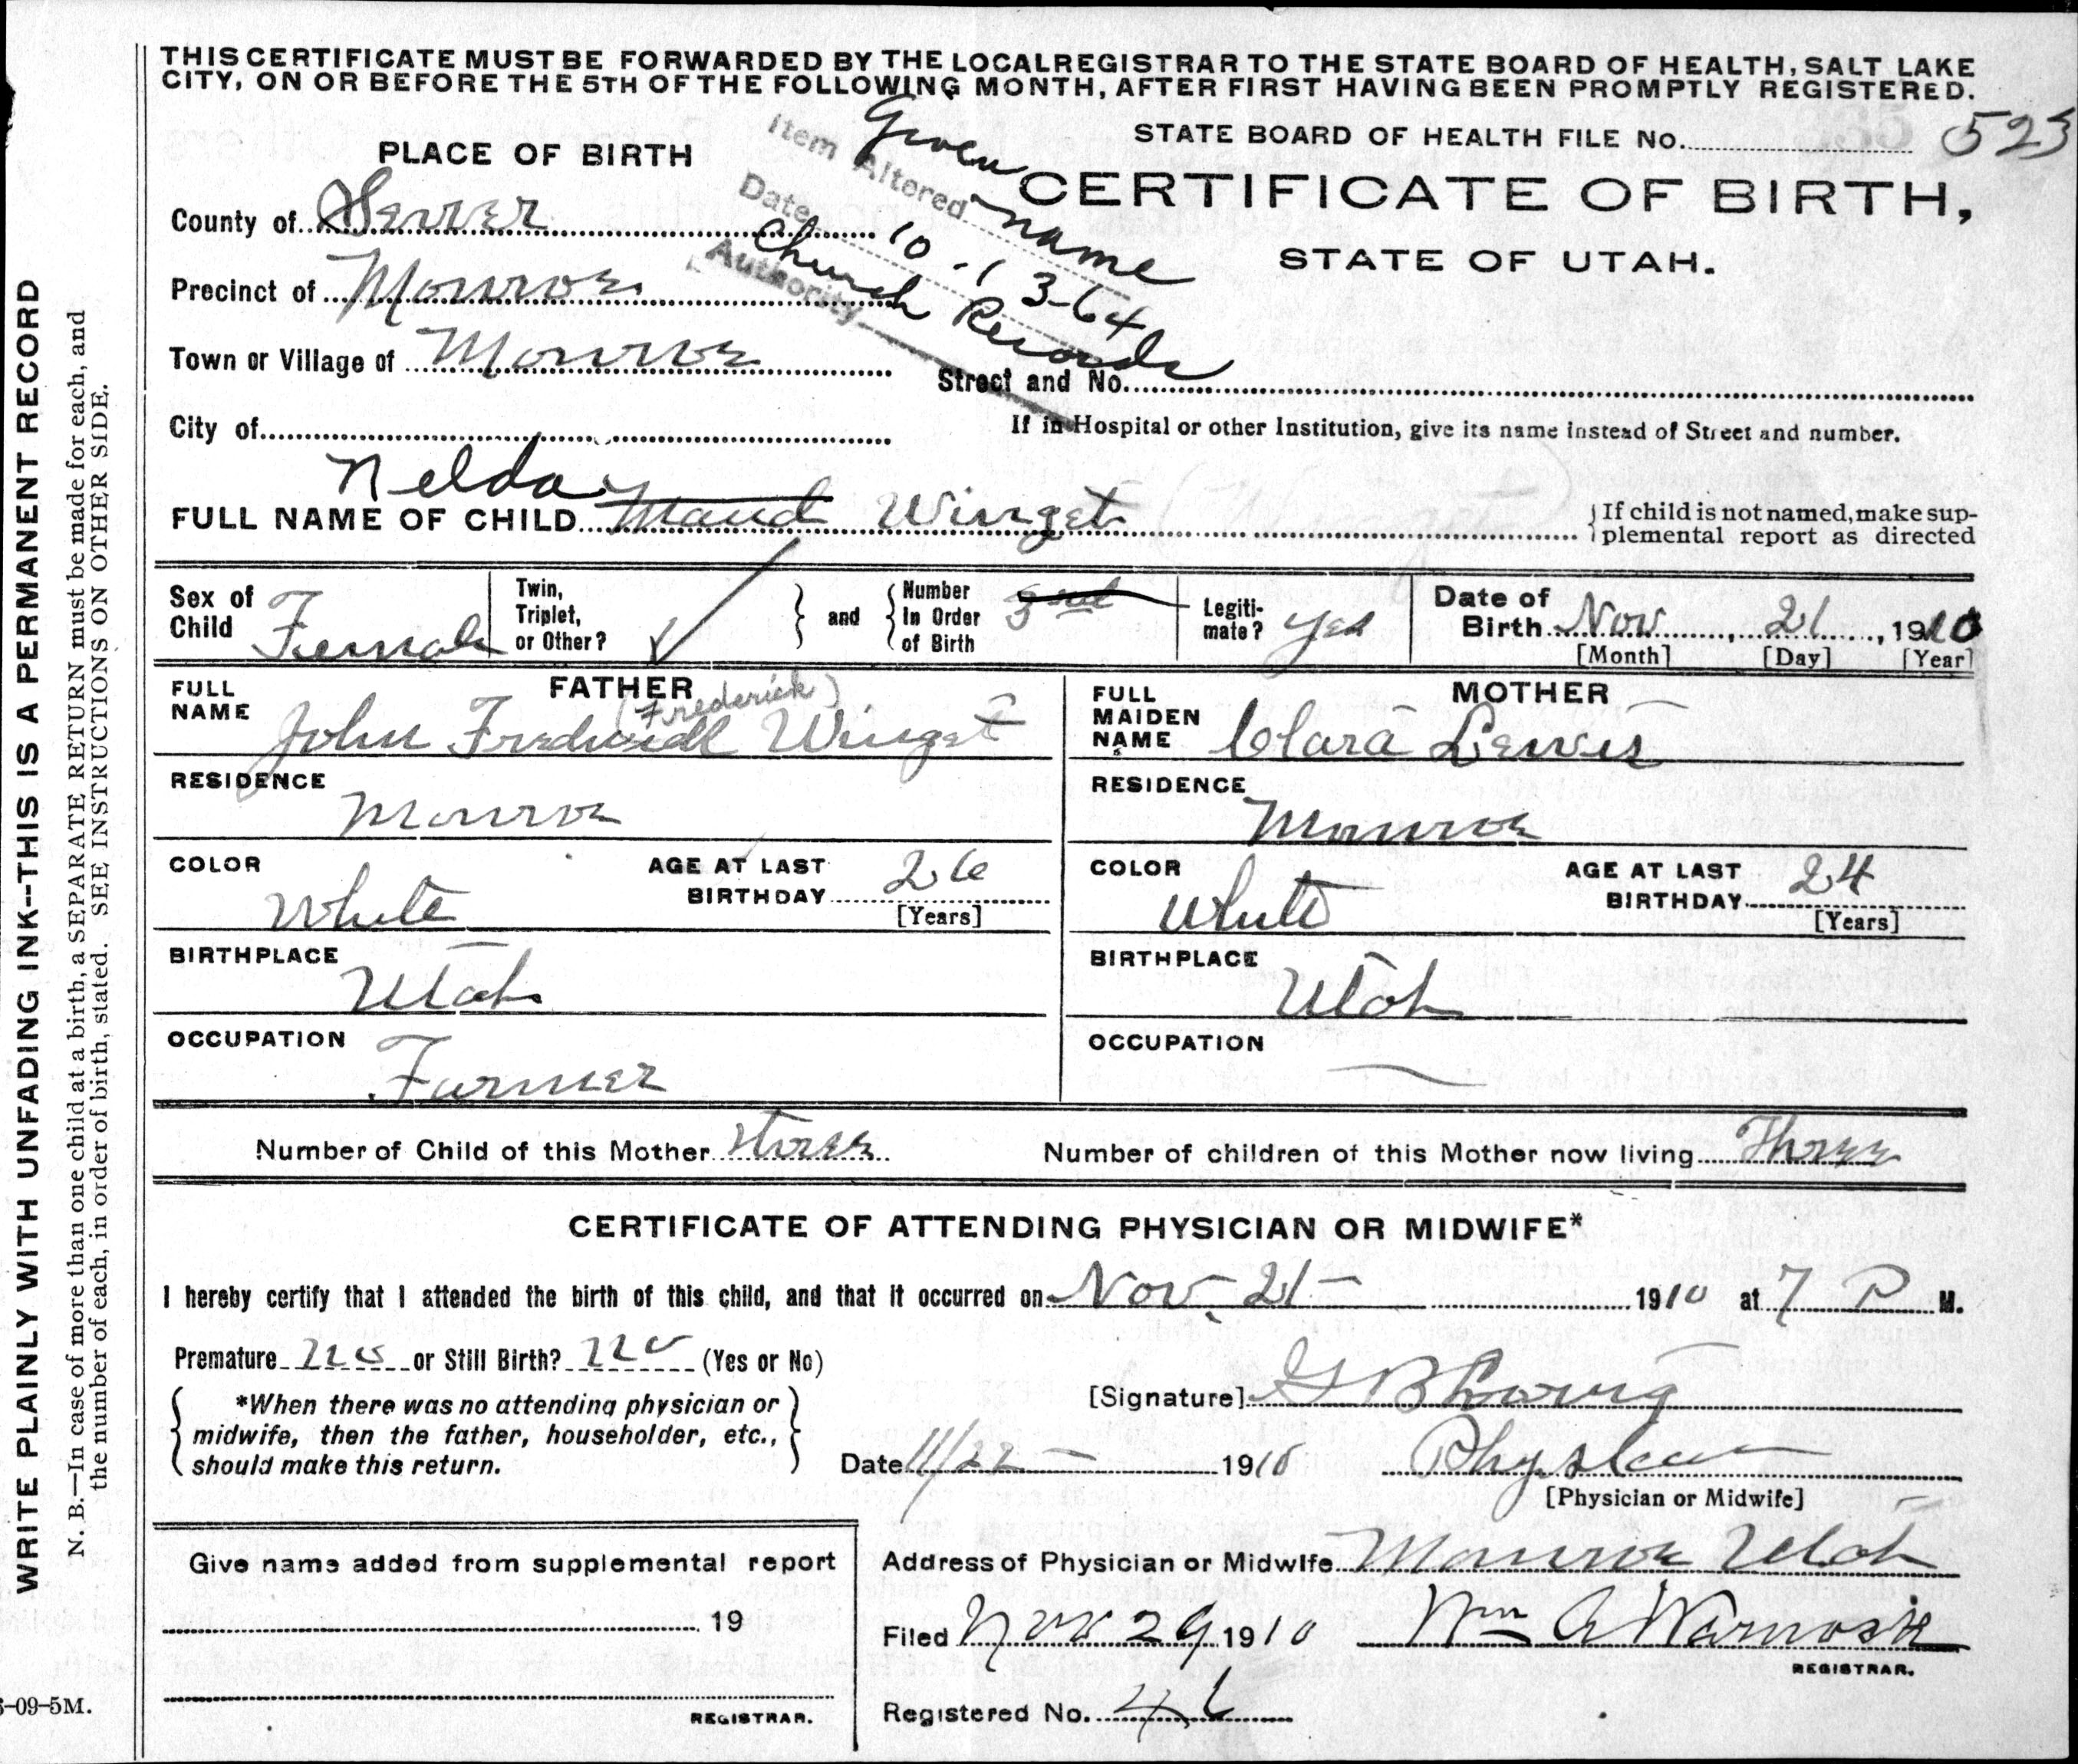 THIS CERTIFICATE MUST BE FORWARDED BY THE LOCAL REGISTRAR TO THE STATE BOARD OF HEALTH, SALT LAKE
CITY, ON OR BEFORE THE 5TH OF THE FOLLOWING MONTH, AFTER FIRST HAVING BEEN PROMPTLY REGISTERED.
STATE BOARD OF HEALTH FILE No. 523
PLACE OF BIRTH
CERTIFICATE OF BIRTH,
STATE OF UTAH.
Item Altered Given name
Date 10-13-64
Authority Church Records
County of Sevier
Precinct of Monroe
Town or Village of Monroe
Street and No.
City of
If in Hospital or other Institution, give its name instead of Street and number.
Nelda
FULL NAME OF CHILD Maud Winget
If child is not named, make sup-
plemental report as directed
Sex of Child Female
Twin, Triplet, or Other?
and
Number In Order of Birth 3rd
Legiti-mate? Yes
Date of Birth Nov, 21, 1910
[Month] [Day] [Year]
FATHER
FULL NAME John Frederick Winget
(Frederick)
RESIDENCE Monroe
COLOR White
AGE AT LAST BIRTHDAY 26
[Years]
BIRTHPLACE Utah
OCCUPATION Farmer
MOTHER
FULL MAIDEN NAME Clara Lewis
RESIDENCE Monroe
COLOR White
AGE AT LAST BIRTHDAY 24
[Years]
BIRTHPLACE Utah
OCCUPATION
Number of Child of this Mother three
Number of children of this Mother now living Three
CERTIFICATE OF ATTENDING PHYSICIAN OR MIDWIFE*
I hereby certify that I attended the birth of this child, and that it occurred on Nov. 21 - 1910 at 7 P M.
Premature no or Still Birth? no (Yes or No)
*When there was no attending physician or
midwife, then the father, householder, etc.,
should make this return.
[Signature] G B
Date 11/22 - 1910 Physician
[Physician or Midwife]
Give name added from supplemental report
19
REGISTRAR.
Address of Physician or Midwife Monroe Utah
Filed Nov 29 1910 Wm A Warnock
REGISTRAR.
Registered No. 46
WRITE PLAINLY WITH UNFADING INK--THIS IS A PERMANENT RECORD
N. B.—In case of more than one child at a birth, a SEPARATE RETURN must be made for each, and
the number of each, in order of birth, stated. SEE INSTRUCTIONS ON OTHER SIDE.
-09-5M.